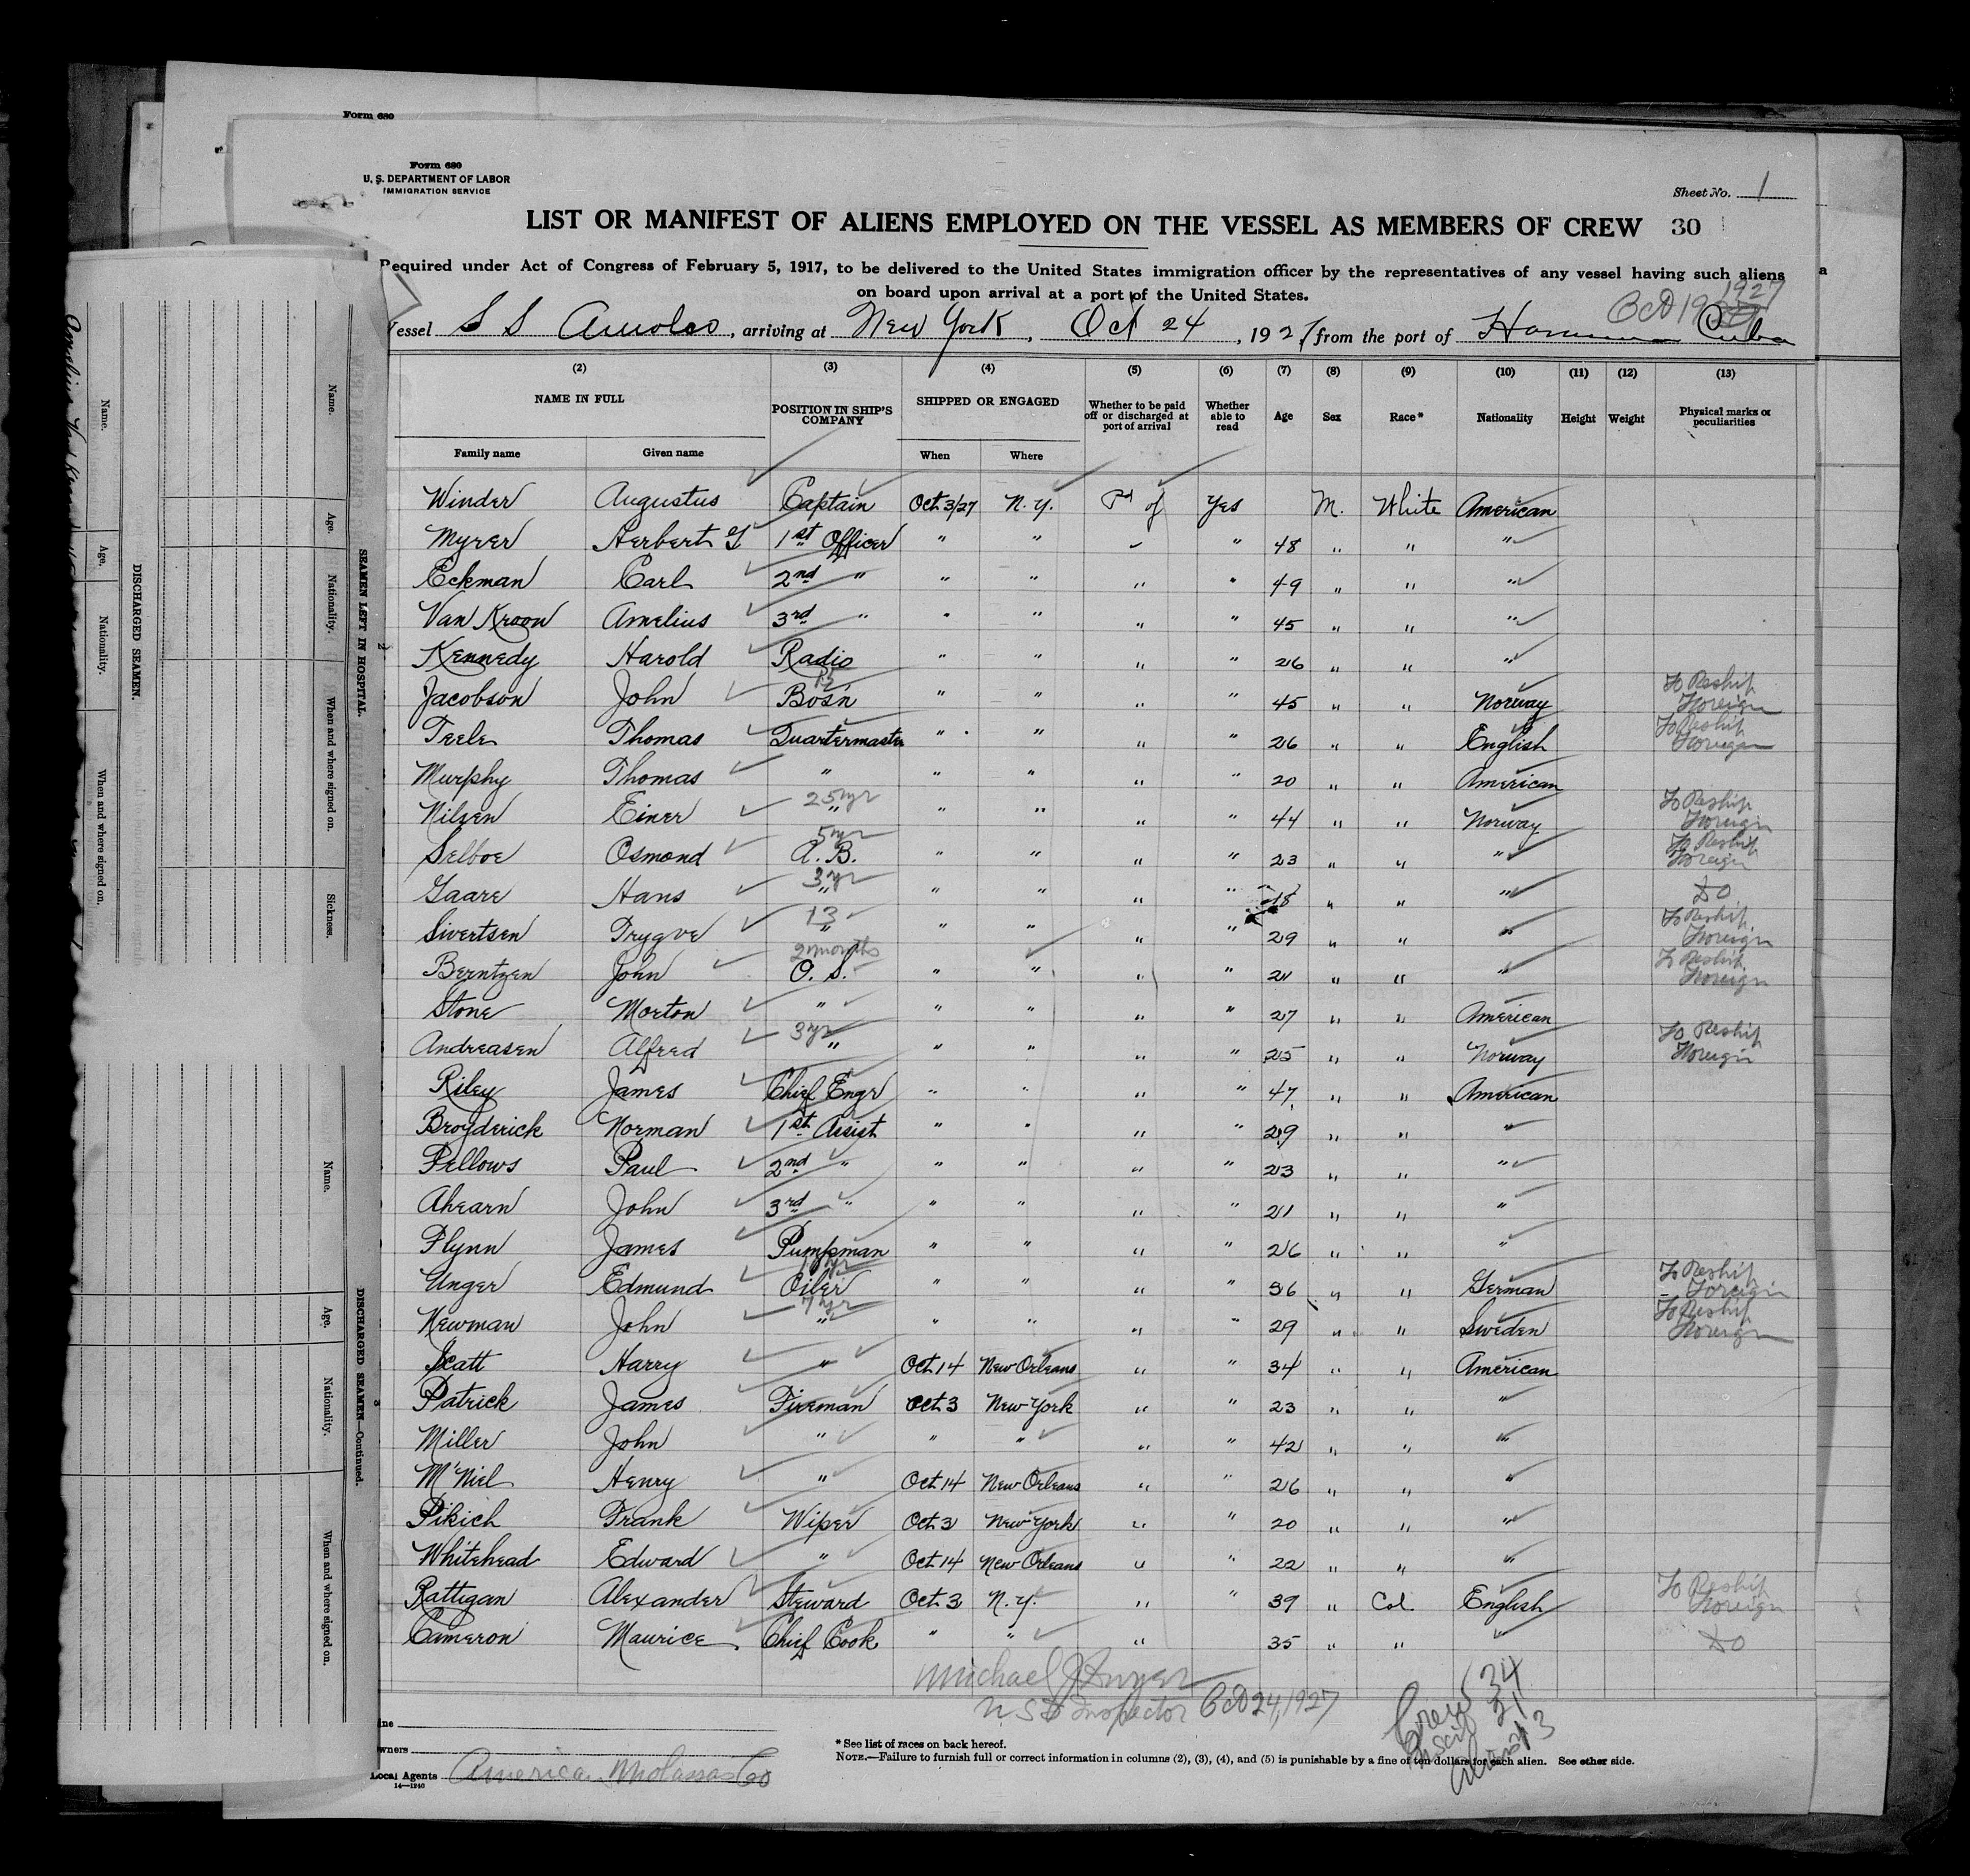 Form 680
Form 680
U. S. DEPARTMENT OF LABOR
IMMIGRATION SERVICE
Sheet No. 1
LIST OR MANIFEST OF ALIENS EMPLOYED ON THE VESSEL AS MEMBERS OF CREW 30
Required under Act of Congress of February 5, 1917, to be delivered to the United States immigration officer by the representatives of any vessel having such aliens
on board upon arrival at a port of the United States.
Oct 19 1927
Vessel S S , arriving at New York, Oct 24, 1927 from the port of Cuba
(2) (3) (4) (5) (6) (7) (8) (9) (10) (11) (12) (13)
NAME IN FULL POSITION IN SHIP'S COMPANY SHIPPED OR ENGAGED Whether to be paid off or discharged at port of arrival Whether able to read Age Sex Race* Nationality Height Weight Physical marks or peculiarities
Family name Given name When Where
Winder Augustus Captain Oct 3/27 N. Y. Pd of Yes M. White American
Myrer Herbert G 1st Officer " " " 48 " " "
Eckman Carl 2nd " " " " " 49 " " "
Van Kroon Amelius 3rd " " " " " 45 " " "
Kennedy Harold Radio " " " " 26 " " "
Jacobson John Bos'n " " " " 45 " " Norway To Reship Foreign
Teele Thomas Quartermaster " " " " 26 " " English To Reship Foreign
Murphy Thomas " " " " " 20 " " American
Nilsen Einer 25 yr " " " " " 44 " " Norway To Reship Foreign
Selboe Osmond 5 yr A. B. " " " " 23 " " " To Reship Foreign
Gaare Hans 3 yr " " " " " 18 " " " Do
Sivertsen Trygve 13 " " " " " 29 " " " To Reship Foreign
Berntzen John 2 months O. S. " " " " 21 " " " To Reship Foreign
Stone Morton " " " " " 27 " " American
Andreasen Alfred 3 yr " " " " " 25 " " Norway To Reship Foreign
Riley James Chief Engr " " " " 47 " " American
Broyderick Norman 1st Assist " " " " 29 " " "
Fellows Paul 2nd " " " " " 23 " " "
Ahearn John 3rd " " " " " 21 " " "
Flynn James Pumpman " " " " 26 " " "
Unger Edmund Oiler " " " " 36 " " German To Reship Foreign
Newman John 7 yr " " " " " 29 " " Sweden To Reship Foreign
Scatt Harry " Oct 14 New Orleans " " 34 " " American
Patrick James Fireman Oct 3 New York " " 23 " " "
Miller John " " " " " 42 " " "
McNiel Henry " Oct 14 New Orleans " " 26 " " "
Pikich Frank Wiper Oct 3 New York " " 20 " " "
Whitehead Edward " Oct 14 New Orleans " " 22 " " "
Rattigan Alexander Steward Oct 3 N. Y. " " 39 " Col. English To Reship Foreign
Cameron Maurice Chief Cook " " " 35 " " " Do
Michael J
U S Inspector Oct 24, 1927
Crew 34
21
13
Line
Owners
Local Agents American Molasses Co
14—1240
* See list of races on back hereof.
NOTE.—Failure to furnish full or correct information in columns (2), (3), (4), and (5) is punishable by a fine of ten dollars for each alien. See other side.
SEAMEN LEFT IN HOSPITAL.
Name. Age. Nationality. When and where signed on. Sickness.
DISCHARGED SEAMEN.
Name. Age. Nationality. When and where signed on.
DISCHARGED SEAMEN—Continued.
Name. Age. Nationality. When and where signed on.